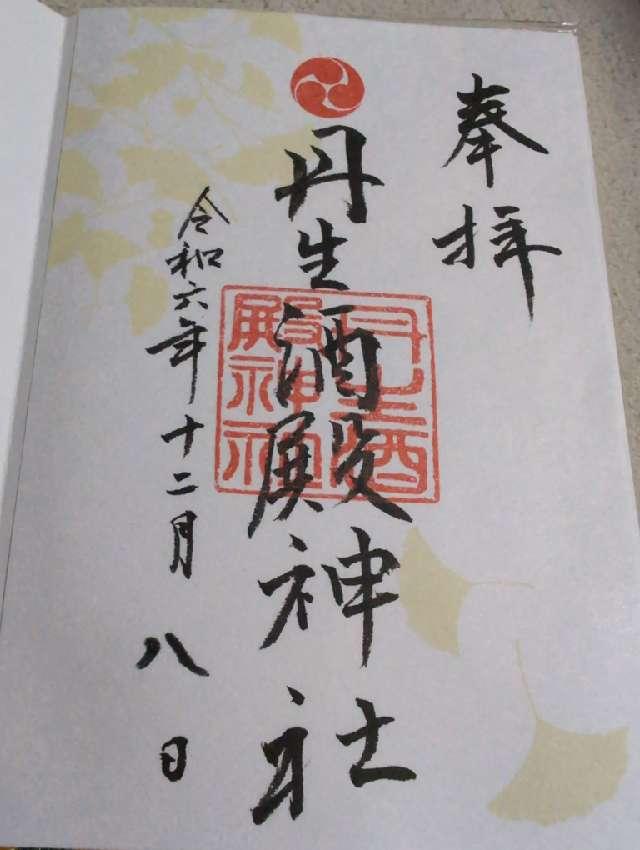 奉拝
丹生酒殿神社
丹生酒殿神社
令和六年十二月八日